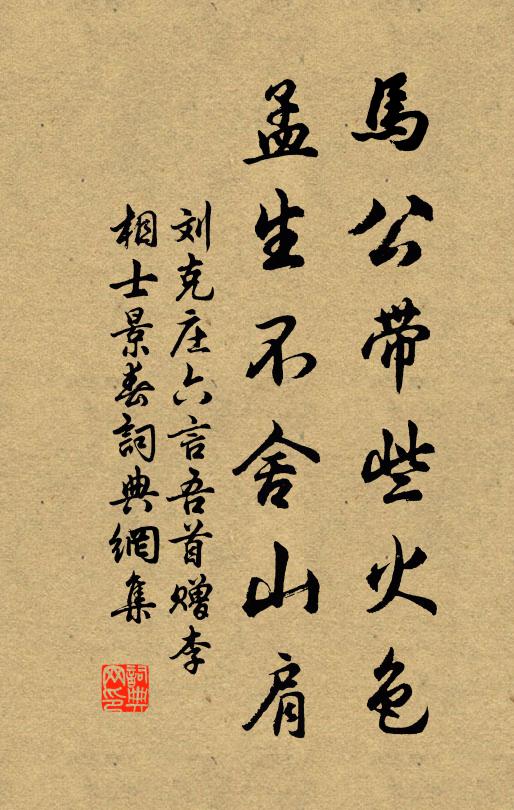 馬公帶些火色
孟生不舍山肩
刘克庄六言吾首赠李
相士景春詞典網集
詞典網印